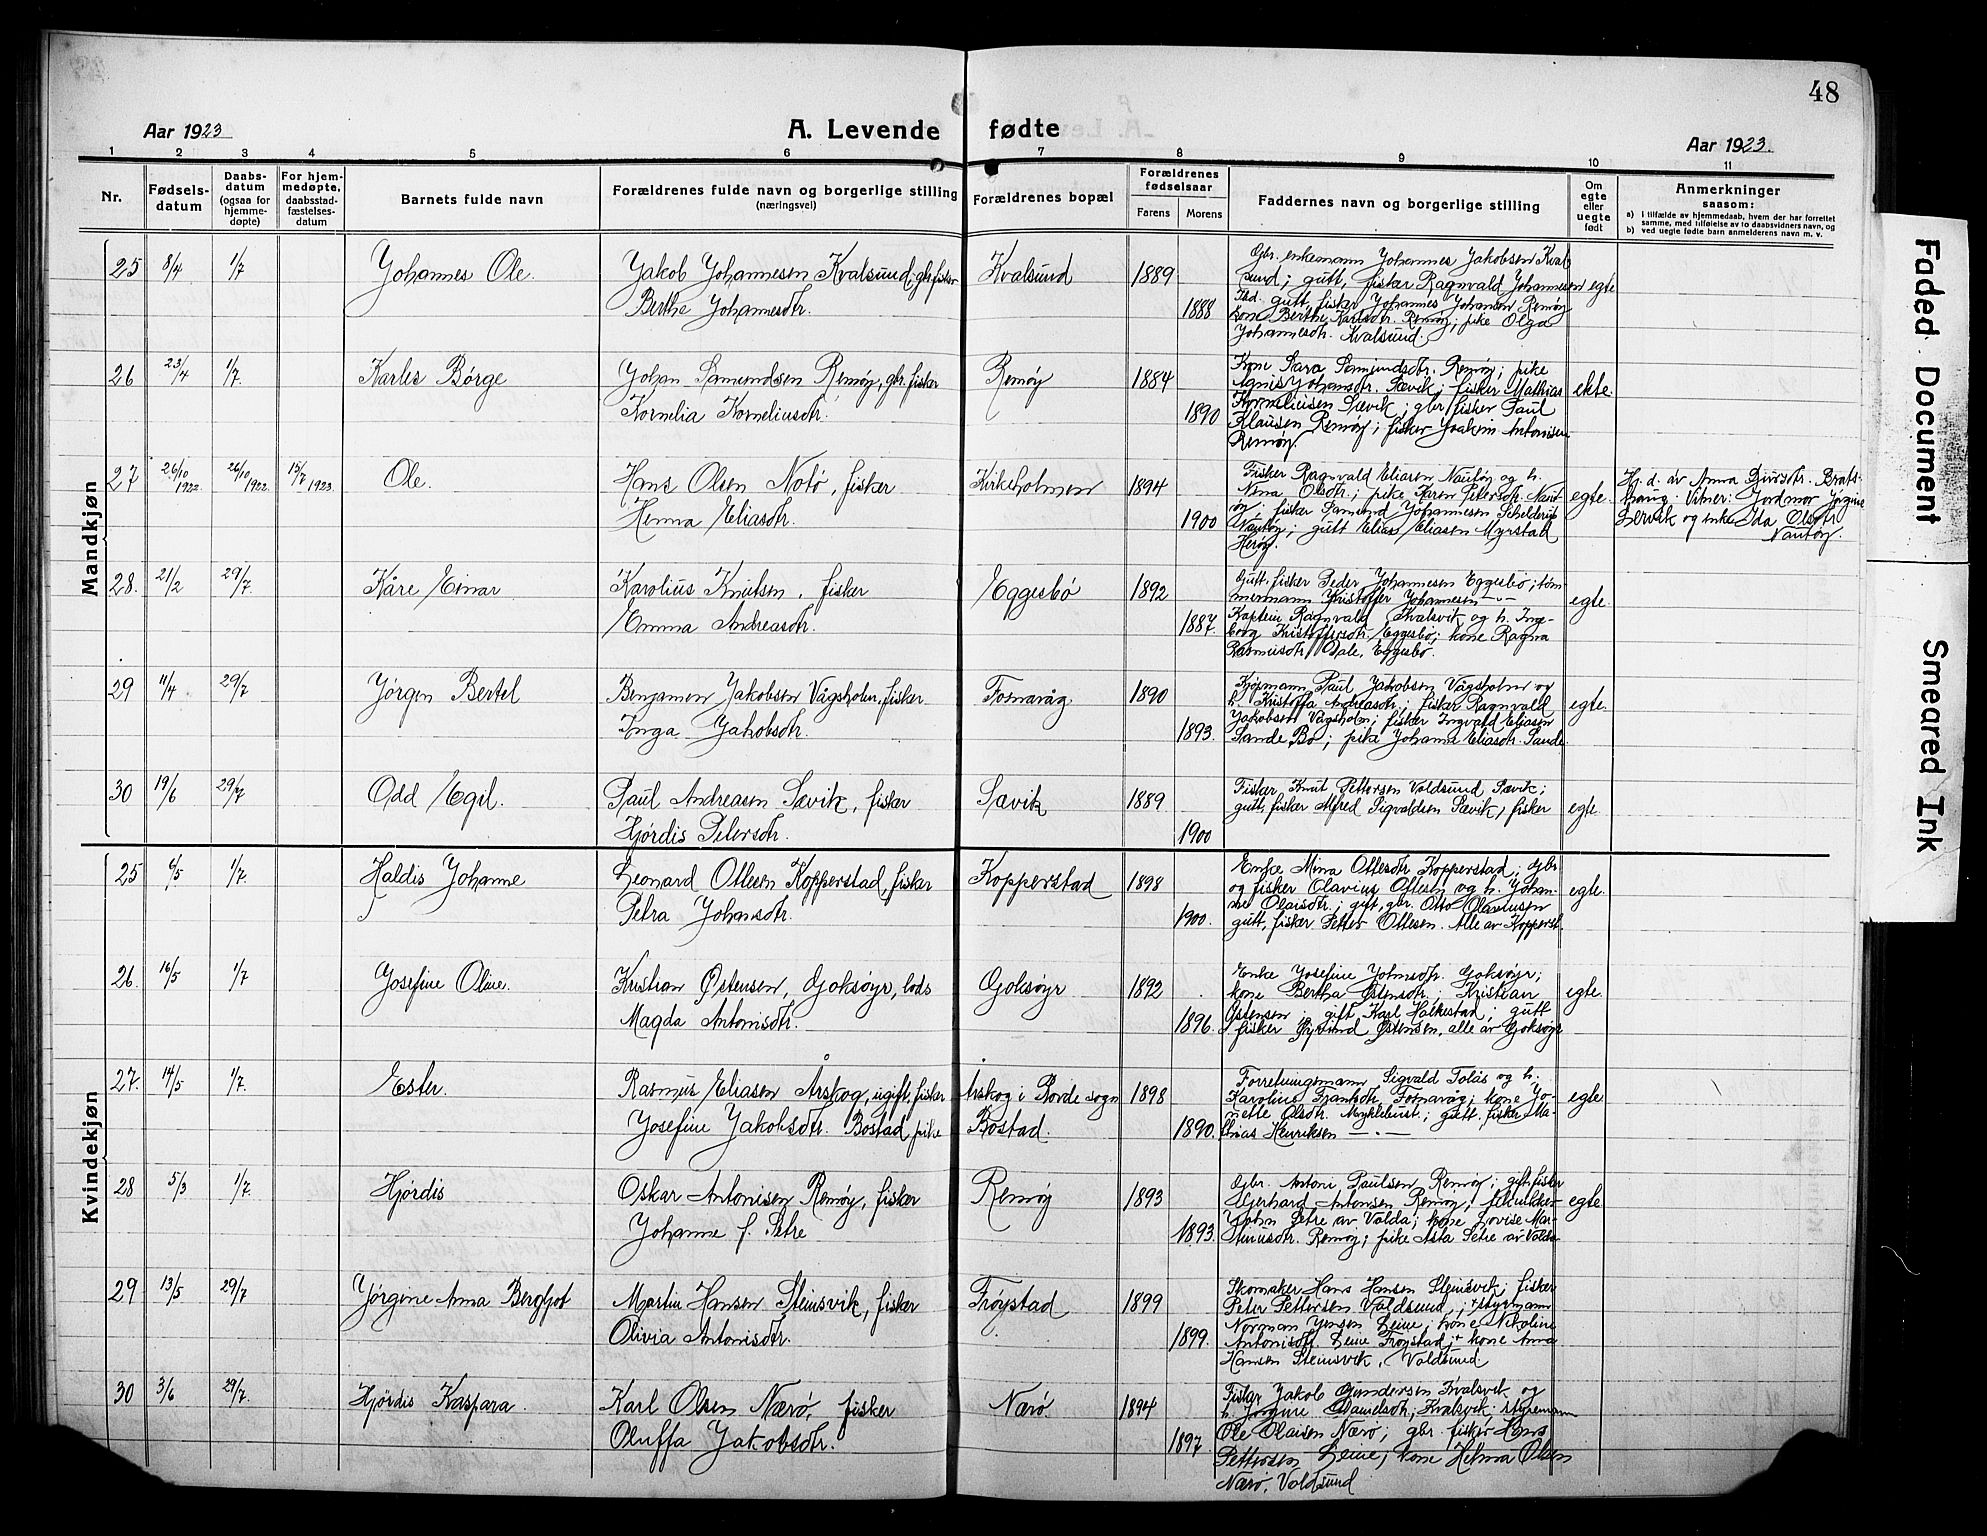 48
Aar 1923
A. Levende fødte
Aar 1923.
1 2 3 4 5 6 7 8 9 10 11
Nr.
Fødsels-
datum
Daabs-
datum
(ogsaa for
hjemme-
døpte)
For hjem-
medøpte,
daabsstad-
fæstelses-
datum
Barnets fulde navn
Forældrenes fulde navn og borgerlige stilling
(næringsvei)
Forældrenes bopæl
Forældrenes
fødselsaar
Farens Morens
Faddernes navn og borgerlige stilling
Om
egte
eller
uegte
født
Anmerkninger
saasom:
a) i tilfælde av hjemmedaab, hvem der har forrettet
samme, med tilføielse av to daabsvidners navn, og
b) ved uegte fødte barn anmelderens navn m. v.
Mandkjøn
25 8/4 1/7 Johannes Ole. Jakob Johannesen Kvalsund, gbr. fisker Kvalsund 1889
Berthe Johannesdtr. 1888
Gbr. enkemann Johannes Jakobsen Kval-
sund; gutt, fisker Ragnvald Johannesen egte
Ibd. gutt, fisker Johannes Johansen Remøy
kone Berthe Karlsdtr. Remøy; pike Olga
Johannesdtr. Kvalsund.
26 23/4 1/7. Karles Børge Johan Samundsen Remøy, gbr. fisker Remøy 1884
Kornelia Korneliusdtr. 1890
Kone Sara Samundsdtr. Remøy; pike
Agnes Johansdtr. Sævik; fisker Mathias ekte.
Korneliusen Sævik; gbr fisker Paul
Klausen Remøy; fisker Joakim Antonisen
Remøy.
27 26/10 1922. 26/10 1922. 15/7 1923. Ole. Hans Olsen Notø, fisker Kirkeholmen 1894
Henna Eliasdtr. 1900
Fisker Ragnvald Eliasen Nautøy og h.
Nina Olsdtr.; pike Karen Petersdtr. Naut-
øy; fisker Samund Johannesen egte.
Nautøy; gutt Elias Eliasen Myrstad
Herøy.
Hj. d. av Anna
Vitner: Jordmor Jørgine
Lervik og enke Ida Olsdtr.
Nautøy.
28. 21/2 29/7. Kåre Einar Karolius Knutsen, fisker Eggesbø 1892
Emma Andreasdtr. 1887.
Gutt, fisker Peder Johannesen Eggesbø; tøm-
mermann Kristoffer Johannesen —"— egte.
Kaptein Ragnvald Kvalsvik og h. Inge-
borg Kristoffersdtr. Eggesbø; kone Ragna
Rasmusdtr. Dale, Eggesbø.
29 11/4 29/7 Jørgen Bertel Benjamin Jakobsen Vågsholm, fisker Fosnavåg 1890
Inga Jakobsdtr. 1893.
Kjøpmann Paul Jakobsen Vågsholm og
h. Kristoffa Andreasdtr.; fisker Ragnvald egte.
Jakobsen Vågsholm; fisker Ingvald Eliasen
Sande Bø; pike Johanne Eliasdtr. Sande.
30 19/6 29/7 Odd Egil. Paul Andreasen Sævik, fisker Sævik 1889
Hjørdis Petersdtr. 1900
Fisker Knut Pettersen Voldsund Sævik;
gutt, fisker Alfred Sigvaldsen Sævik, fisker egte.
Kvindekjøn
25 6/5 1/7. Haldis Johanne Leonard Ottesen Kopperstad, fisker Kopperstad 1898
Petra Johansdtr. 1900.
Enke Mina Ottesdtr. Kopperstad; gbr
og fisker Olavius Ottesen og h. Johan- egte.
ne Olaisdtr.; gift, gbr. Otto Olaviusen
gutt, fisker Petter Ottesen. Alle av Kopperst.
26. 16/5 1/7 Josefine Oline. Kristian Østensen, Goksøyr, lods Goksøyr 1892
Magda Antonisdtr. 1896.
Enke Josefine Johnsdtr. Goksøyr;
kone Bertha Østensdtr, Kristian egte.
Østensen; gift Karl Hålkestad; gutt
fisker Øyvind Østensen, alle av Goksøyr
27. 14/5 1/7. Ester. Rasmus Eliasen Årskog, ugift, fisker Årskog i Borde sogn 1898
Josefine Jakobsdtr. Bøstad, pike Bøstad. 1890.
Forretningsmann Sigvald Tolås og h.
Karoline Fransdtr. Fosnavåg; kone Jo- egte
nette Olsdtr. Myklebust; gutt, fisker Ma-
thias Henriksen —"—
28 5/3 1/7. Hjørdis Oskar Antonisen Remøy, fisker Remøy 1893
Johanne f. Sætre 1893.
Gbr. Antoni Paulsen Remøy; gift fisker
Gerhard Antonsen Remøy; egte.
John Sætre av Volda; kone Lovise Mar-
tinusdtr. Remøy; pike Asta Sætre av Volda
29 13/5 29/7 Jørgine Anna Bergljot Martin Hansen Steinsvik, fisker Frøystad 1899
Olivia Antonisdtr. 1899.
Skomaker Hans Hansen Steinsvik; fisker
Peter Pettersen Voldsund; styrmann
Norman Jensen Leine; kone Nikoline
Antonisdtr. Leine Frøystad; kone Anna
Hansen Steinsvik, Voldsund.
30 3/6 29/7. Hjørdis Kaspara. Karl Olsen Nærø, fisker Nærø. 1894
Oluffa Jakobsdtr. 1897.
Fisker Jakob Gundersen Kvalsvik og
h. Jørgine Danielsdtr; Kvalsvik; styrmann
Ole Olaisen Nærø; gbr. fisker Hans
Pettersen Leine; kone Helma Olsen
Nærø, Voldsund
Faded Document
Smeared Ink